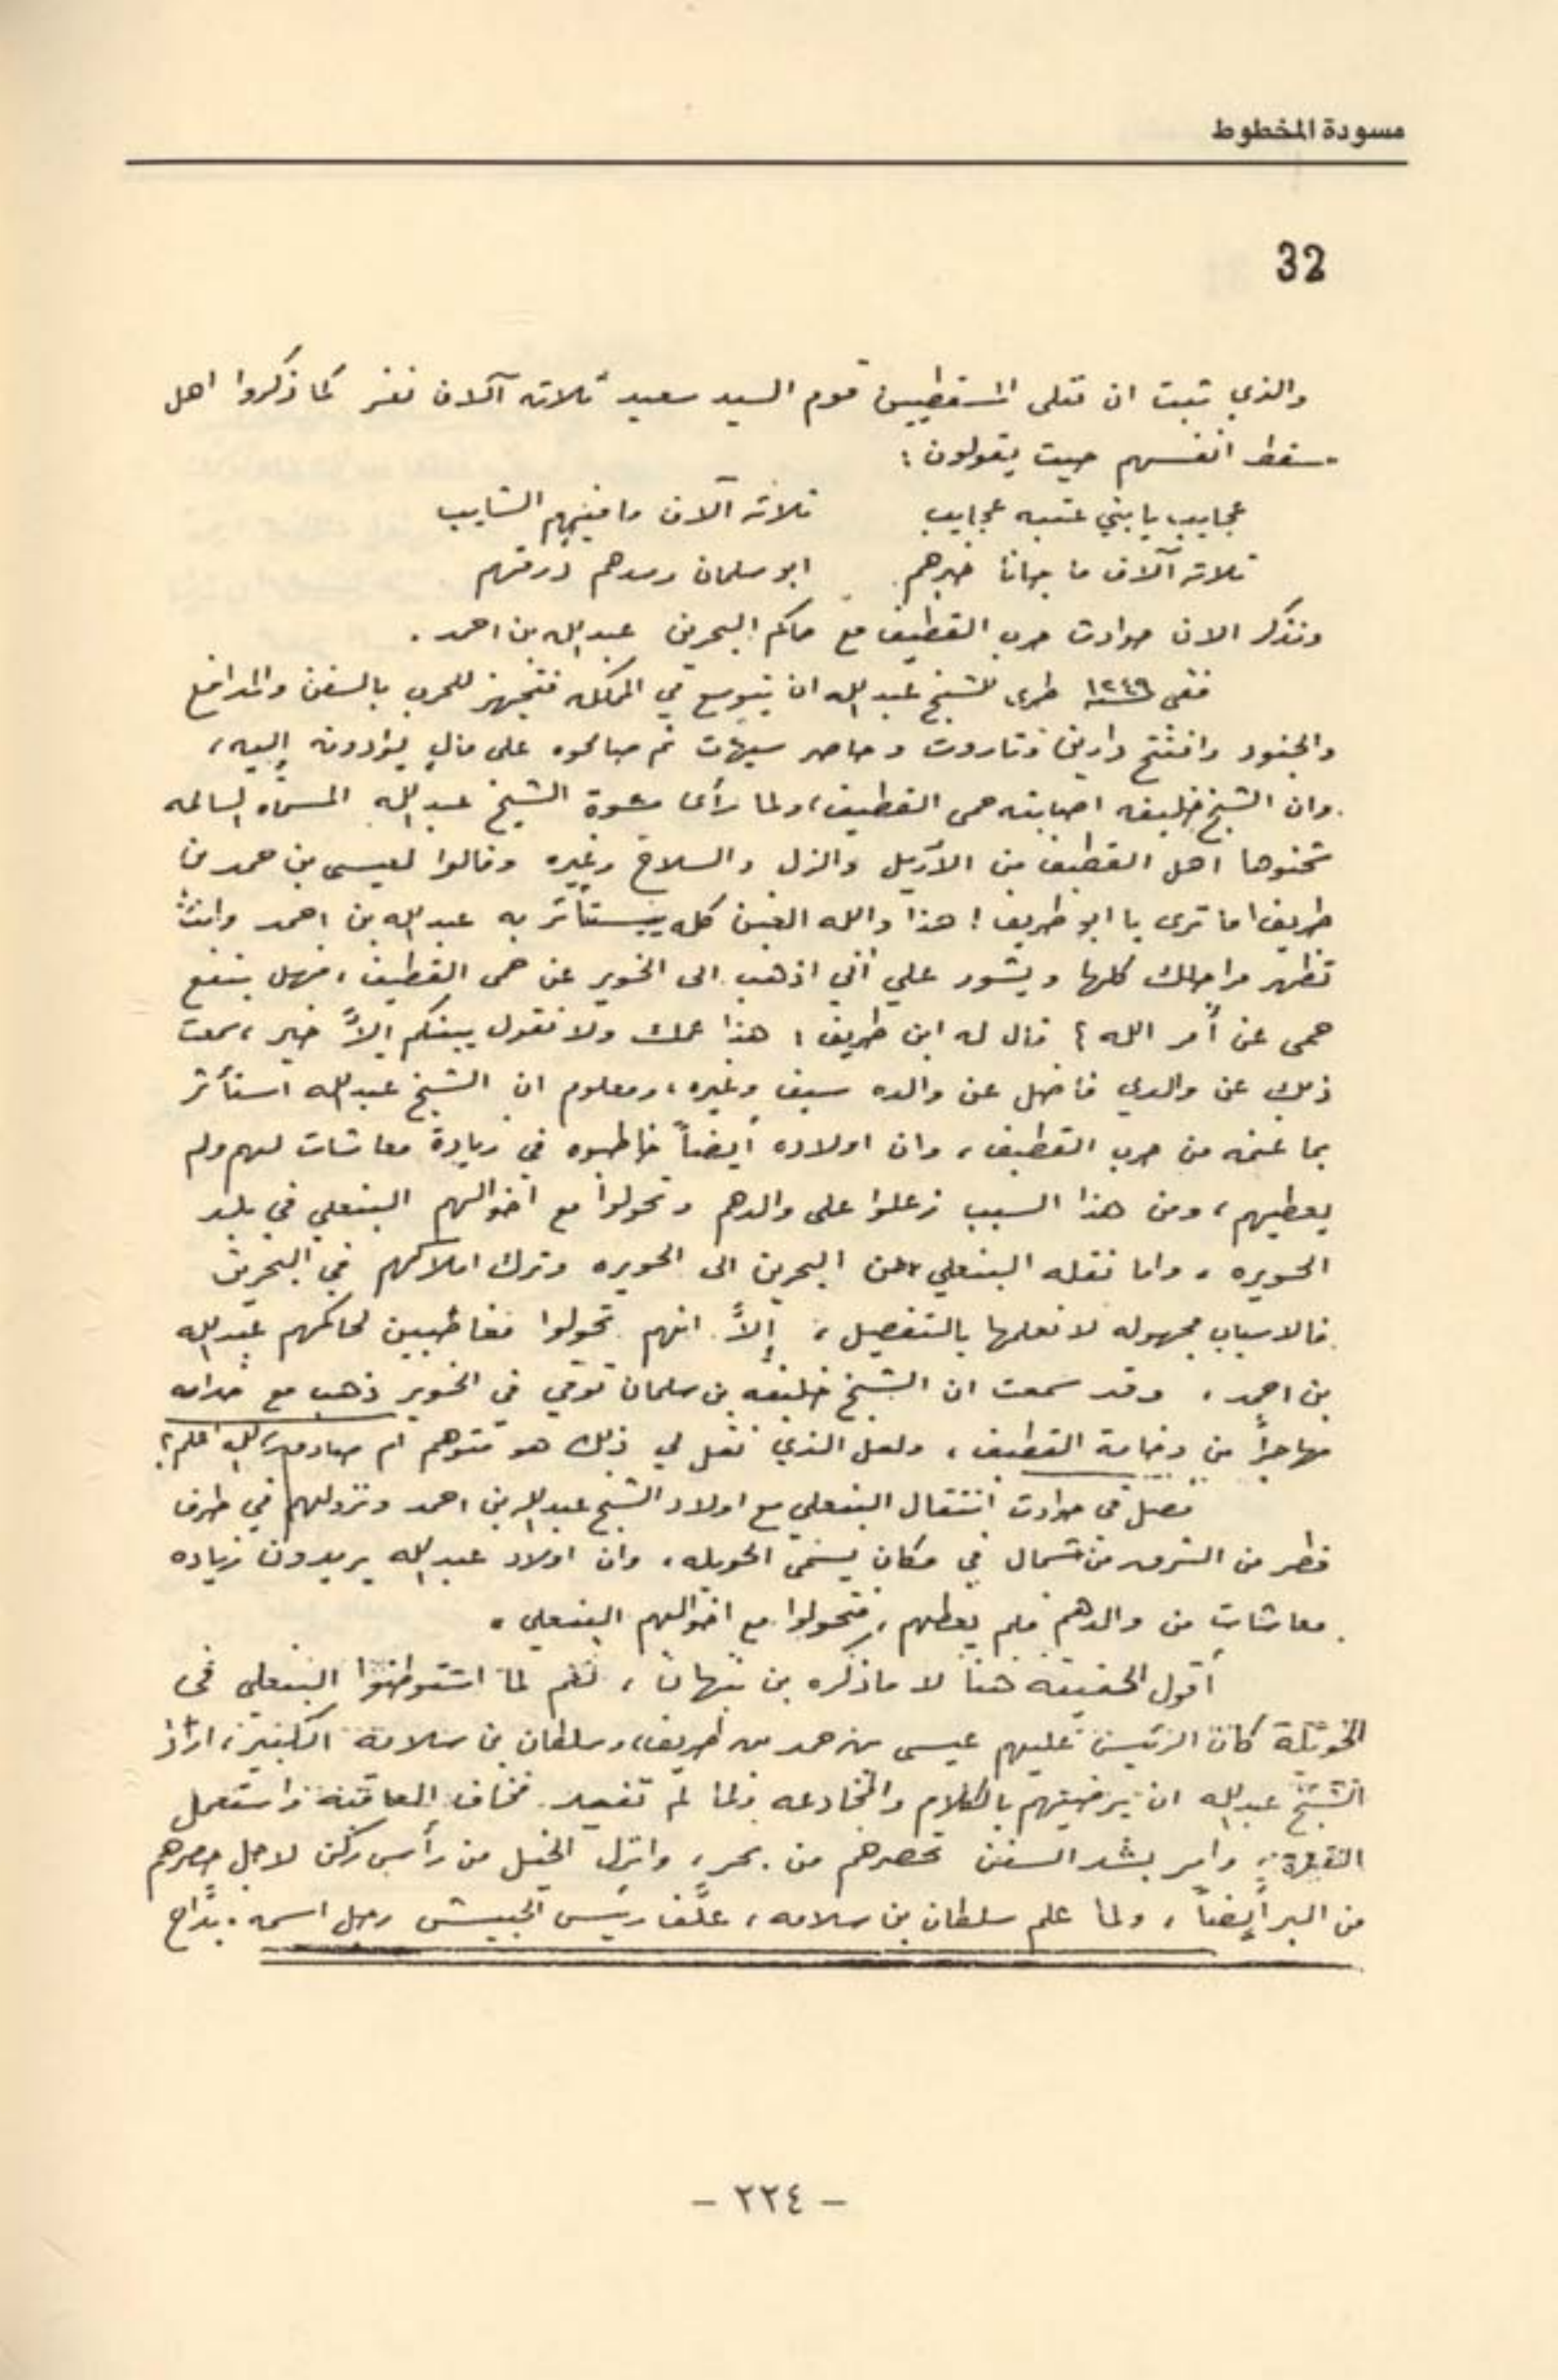 مسودة المخطوط
32
والذي ثبت ان قتلى المسقطيين قوم السيد سعيد ثلاثه آلاف نفر كما ذكروا اهل
مسقط انفسهم حيث يقولون :
عجايب يا بني عتبه عجايب ثلاثه آلاف ما فيهم الشايب
ثلاثه آلاف ما جانا خبرهم ابو سلمان ردهم
ونذكر الان حوادث حرب القطيف مع حاكم البحرين عبدالله بن احمد .
ففي سنة ١٢٤٩ طرى للشيخ عبدالله ان يتوسع في المملكه فتجهز للحرب بالسفن والمدافع
والجنود وافتتح دارين وتاروت وحاصر سيهات ثم صالحوه على مالٍ يؤدونه إليه ،
وان الشيخ خليفه اصابته حمى القطيف ، ولما رأى الشيخ عبدالله المسماه
شحنوها اهل القطيف من والزل والسلاح وغيره وقالوا لعيسى بن حمد بن
طريف اما ترى يا ابو طريف ! هذا والله الغبن كله يستأثر به عبدالله بن احمد وانت
كلها ويشور علي أني اذهب الى الخوير عن حمى القطيف ، فهل ينفع
حمى عن أمر الله ؟ قال له ابن طريف ، هذا عمك ولا نقول بينكم إلاّ خير ، سمعت
ذلك عن والدي فاضل عن والده سيف وغيره ، ومعلوم ان الشيخ عبدالله استأثر
بما غنمه من حرب القطيف ، وان اولاده أيضاً خاطبوه في زيادة معاشات لهم ولم
يعطيهم ، ومن هذا السبب زعلوا على والدهم وتحولوا مع اخوالهم البنعلي في بلد
الحويره ، واما نقله البنعلي من البحرين الى الحويره وترك املاكهم في البحرين
فالاسباب مجهوله لا نعلمها بالتفصيل ، إلاّ انهم تحولوا مغاضبين لحاكمهم عبدالله
بن احمد ، وقد سمعت ان الشيخ خليفه بن سلمان توفي في الخوير ذهب مع خدامه
مهاجراً من وخامة القطيف ، ولعل الذي نقل لي ذلك هو متوهم ام صادق ، الله اعلم ؟
فصل في حوادث انتقال البنعلي مع اولاد الشيخ عبدالله بن احمد ونزولهم في طرف
قطر من الشرق من شمال في مكان يسمى الحويله ، وان اولاد عبدالله يريدون زياده
معاشات من والدهم فلم يعطهم ، فتحولوا مع اخوالهم البنعلي .
أقول الحقيقه هنا لا ما ذكره بن نبهان ، نعم لما استوطنوا البنعلي في
الحويلة كان الرئيس عليهم عيسى بن حمد بن طريف ، وسلطان بن سلامة الكبير ، اراد
الشيخ عبدالله ان يرضيهم بالكلام والمخادعه ولما لم تفيد فخاف العاقبه واستعمل
القوة ، وامر بشد السفن تحصرهم من بحر ، وانزل الخيل من رأس ركن لاجل حصرهم
من البر أيضاً ، ولما علم سلطان بن سلامه ، علّف رئيس الجيش رجل اسمه بدّاح
– ٢٢٤ –